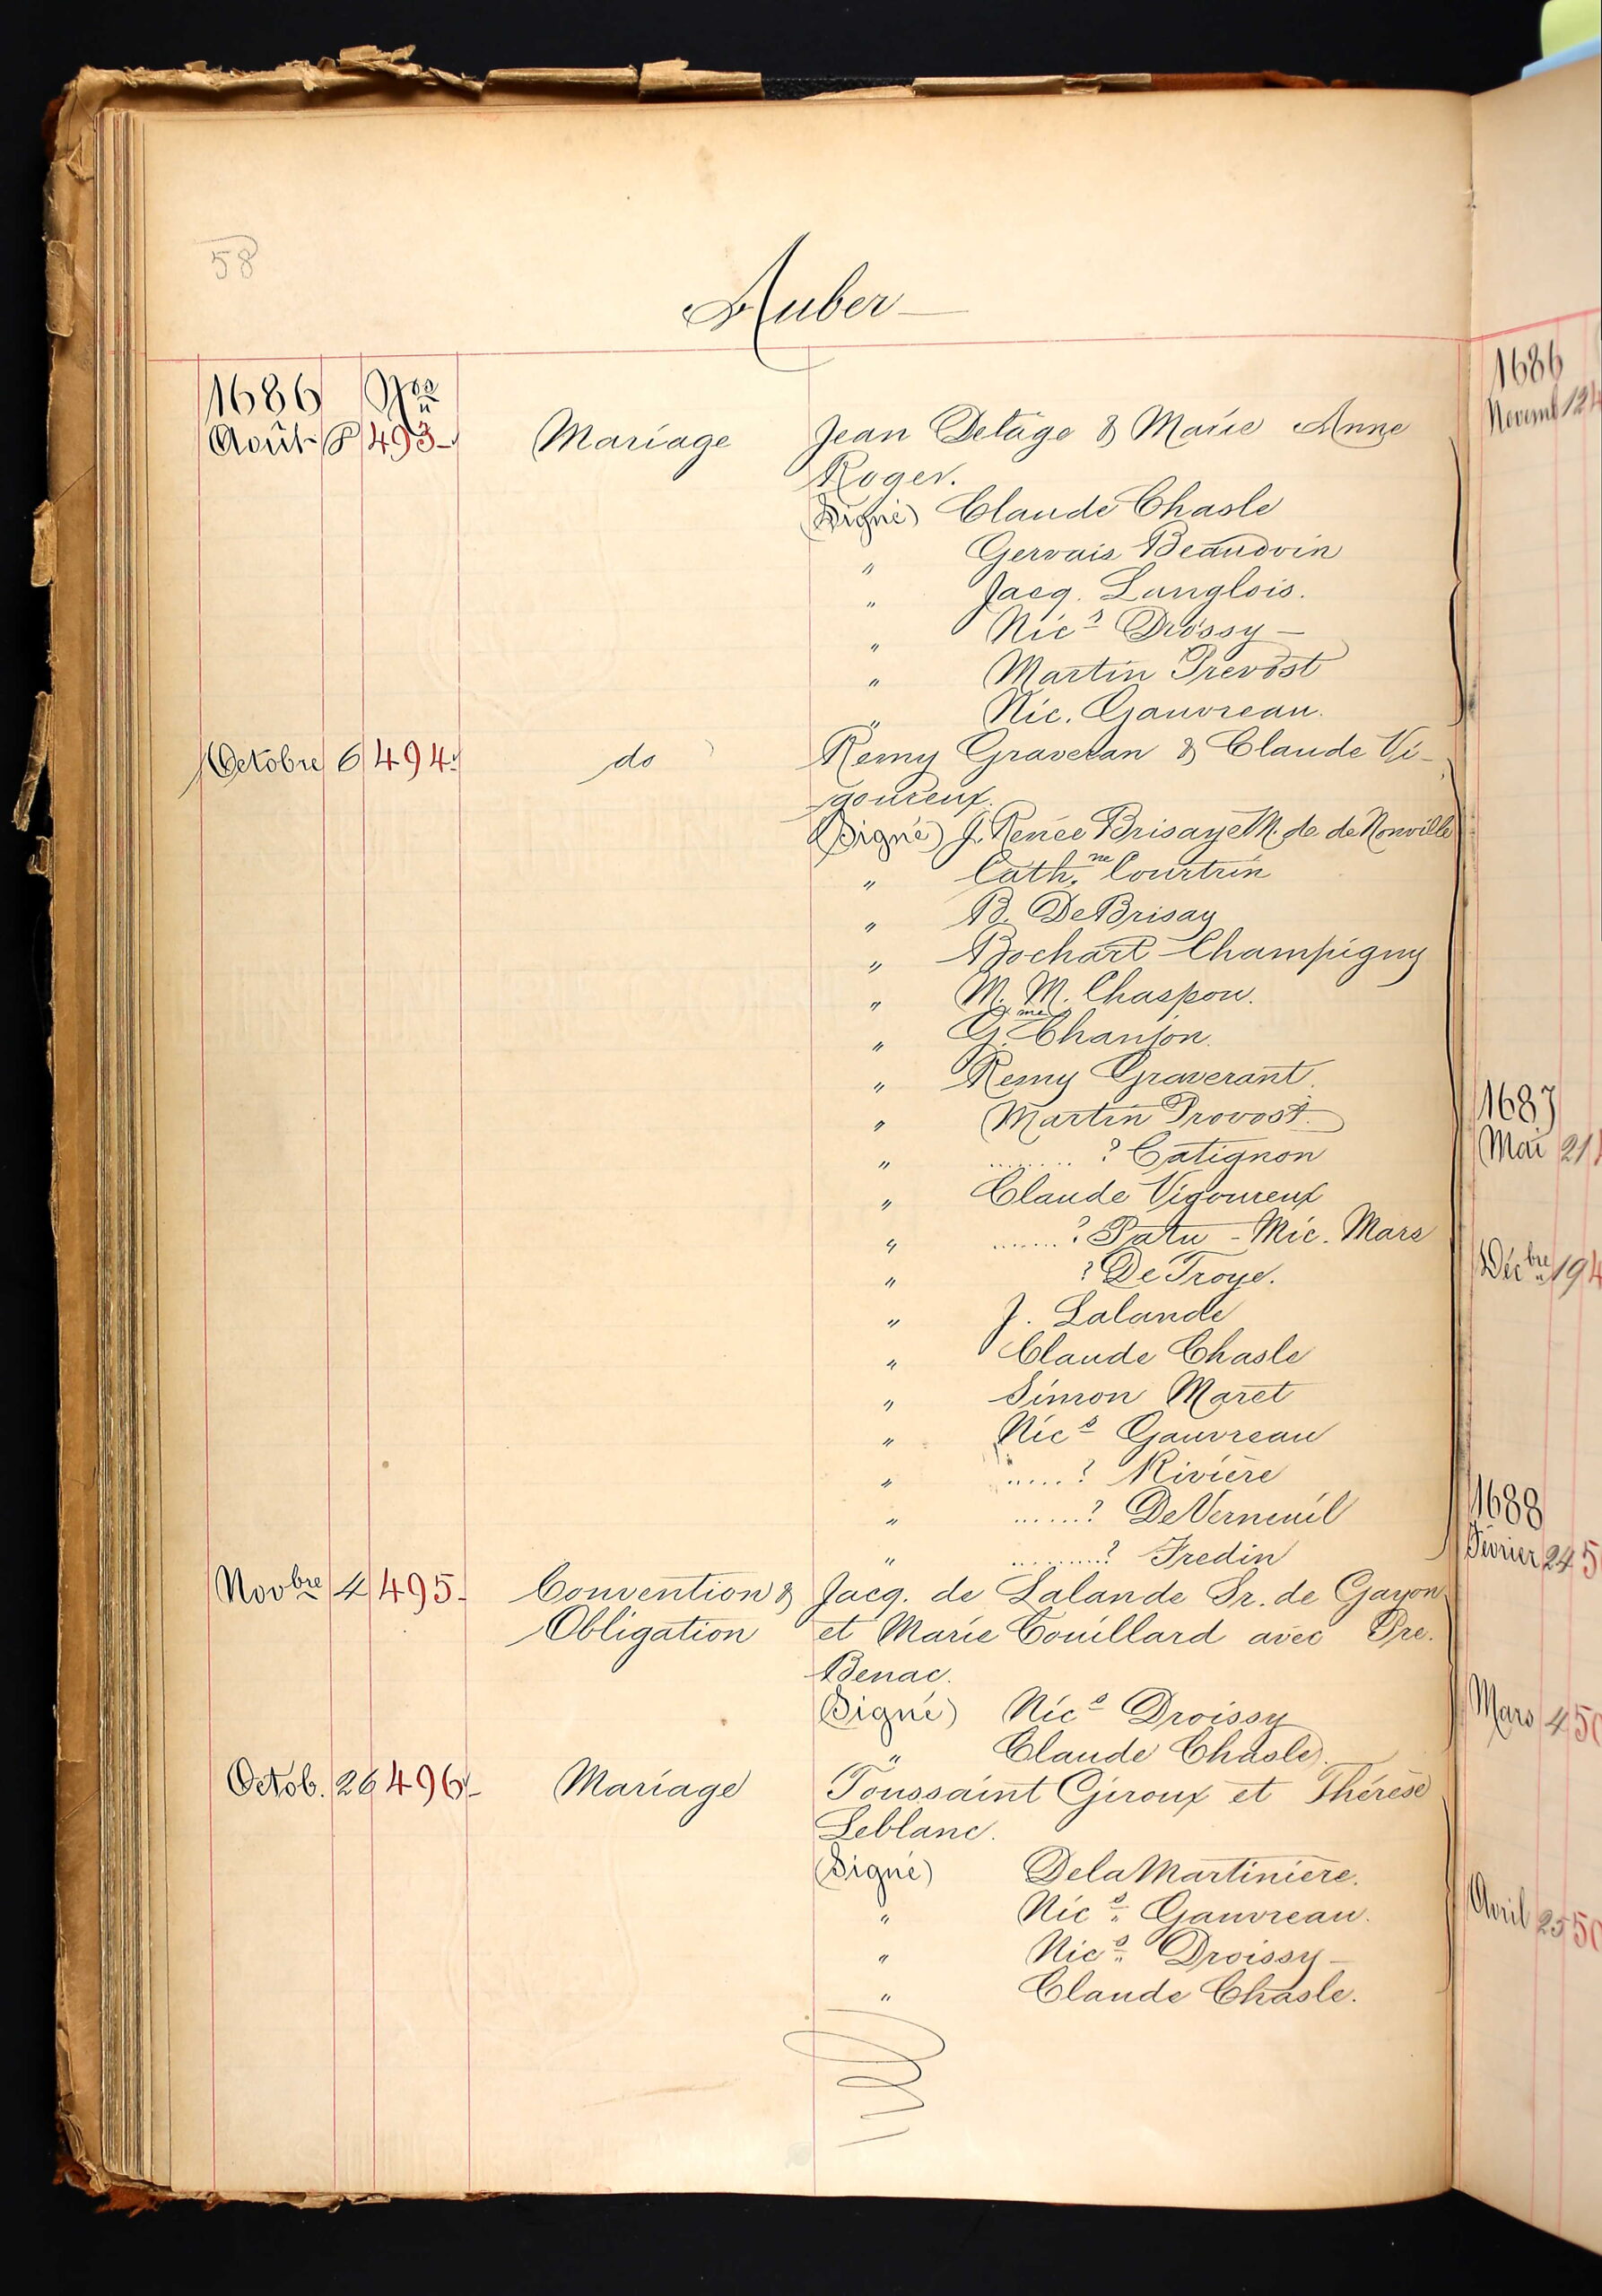 58
Auber
1686 Nos
Août 8 493 Mariage Jean Delâge & Marie Anne
Roger.
(Signé) Claude Chasle
" Gervais Beaudoin
" Jacq. Langlois.
" Nics Drossy —
" Martin Prevost
" Nic. Gauvreau.
Octobre 6 494 do Remy Graveran & Claude Vi-
goureux.
(Signé) J. Renée Brisay et M. de de Nonville
" Cath.ne Courtrin
" B. DeBrisay
" Bochart Champigny
" M. M. Chaspou.
" G.me Chanjon.
" Remy Graverant.
" Martin Provost.
" ........ ? Catignon
" Claude Vigoureux
" .......? Patu - Mic. Mars
" ? DeTroye.
" J. Lalande
" Claude Chasle
" Simon Maret
" Nics Gauvreau
" ......? Rivière
" .......? DeVerneuil
" ..........? Fredin
Novbre 4 495 Convention & Jacq. de Lalande Sr. de Gayon
Obligation et Marie Couillard avec Pre.
Benac.
(Signé) Nics Droissy
" Claude Chasle.
Octob. 26 496 Mariage Toussaint Giroux et Thérèse
Leblanc.
(Signé) DelaMartinière.
" Nics Gauvreau.
" Nics Droissy —
" Claude Chasle.
1686
Novemb 12 4
1687
Mai 21
Décbre 19 4
1688
Février 24 5
Mars 4 50
Avril 25 50